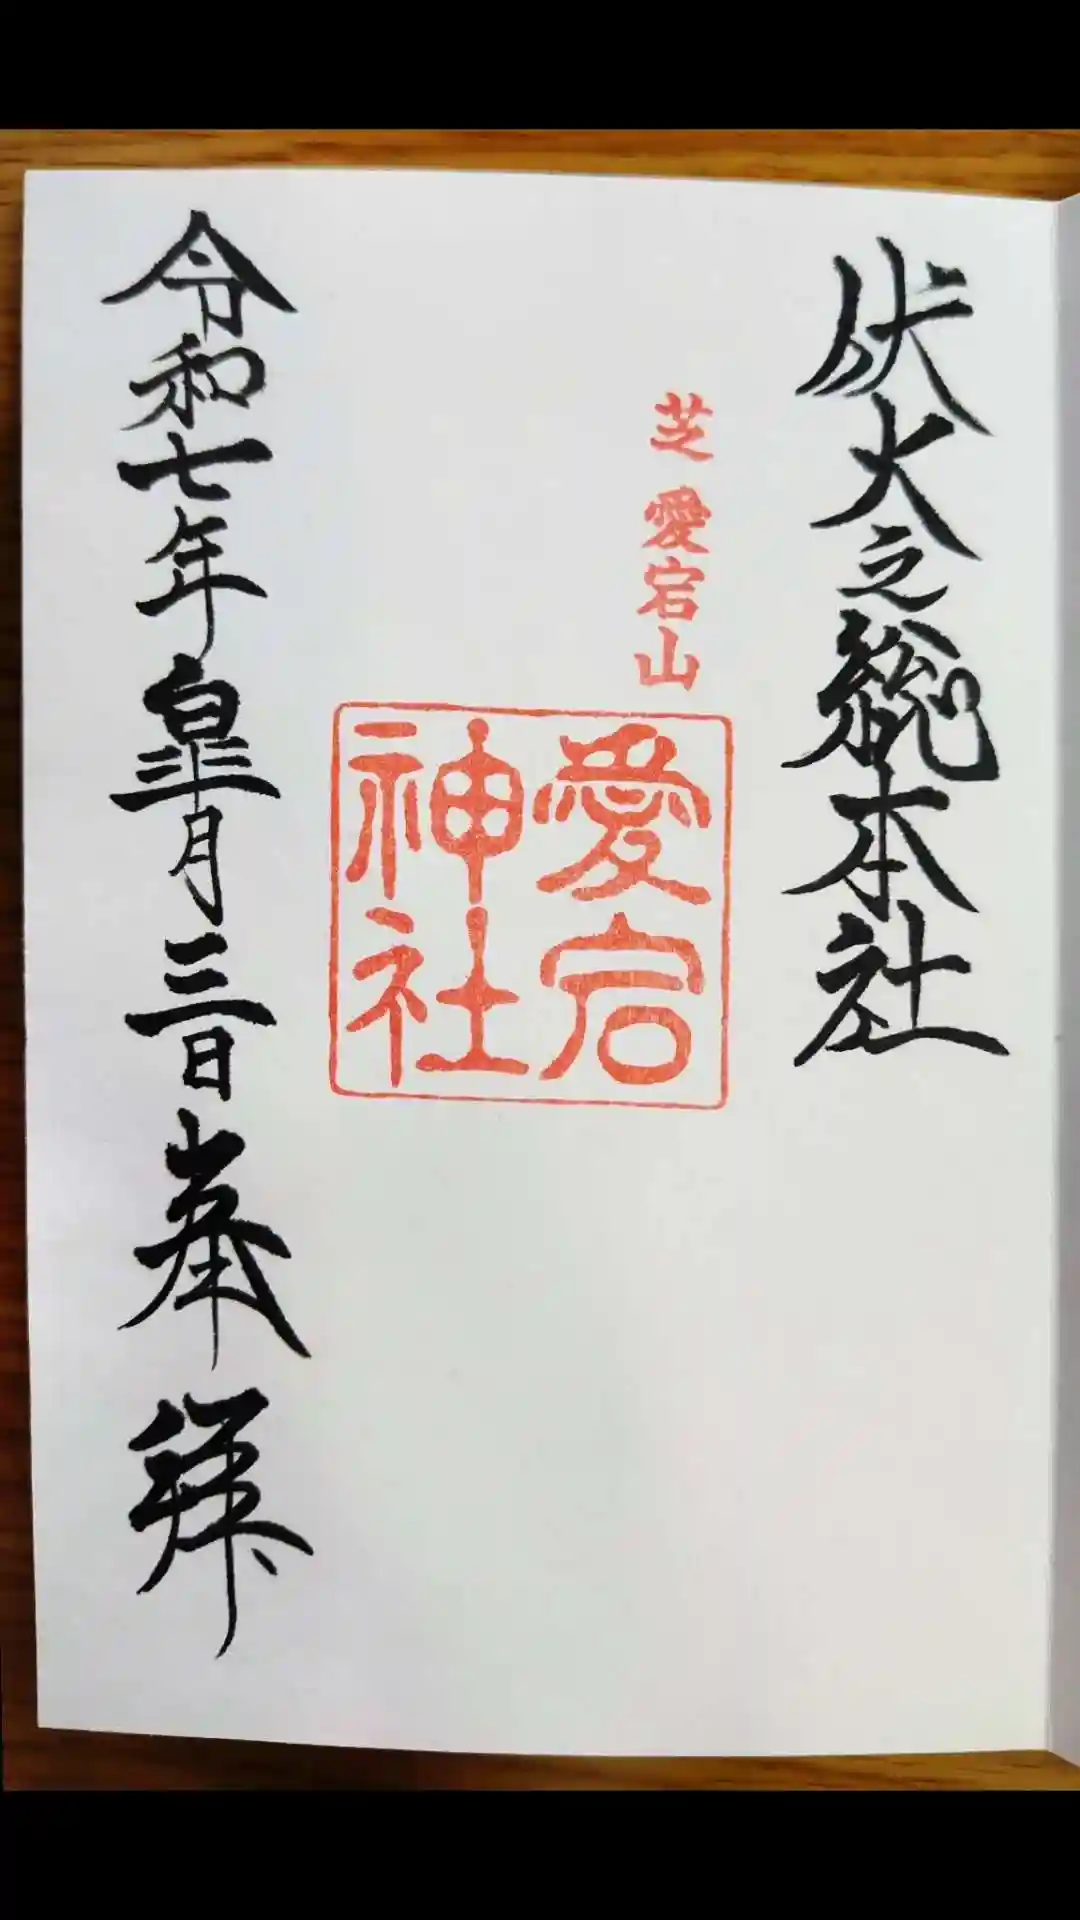 伏火之総本社
芝 愛宕山
愛宕
神社
令和七年皐月三日奉拝